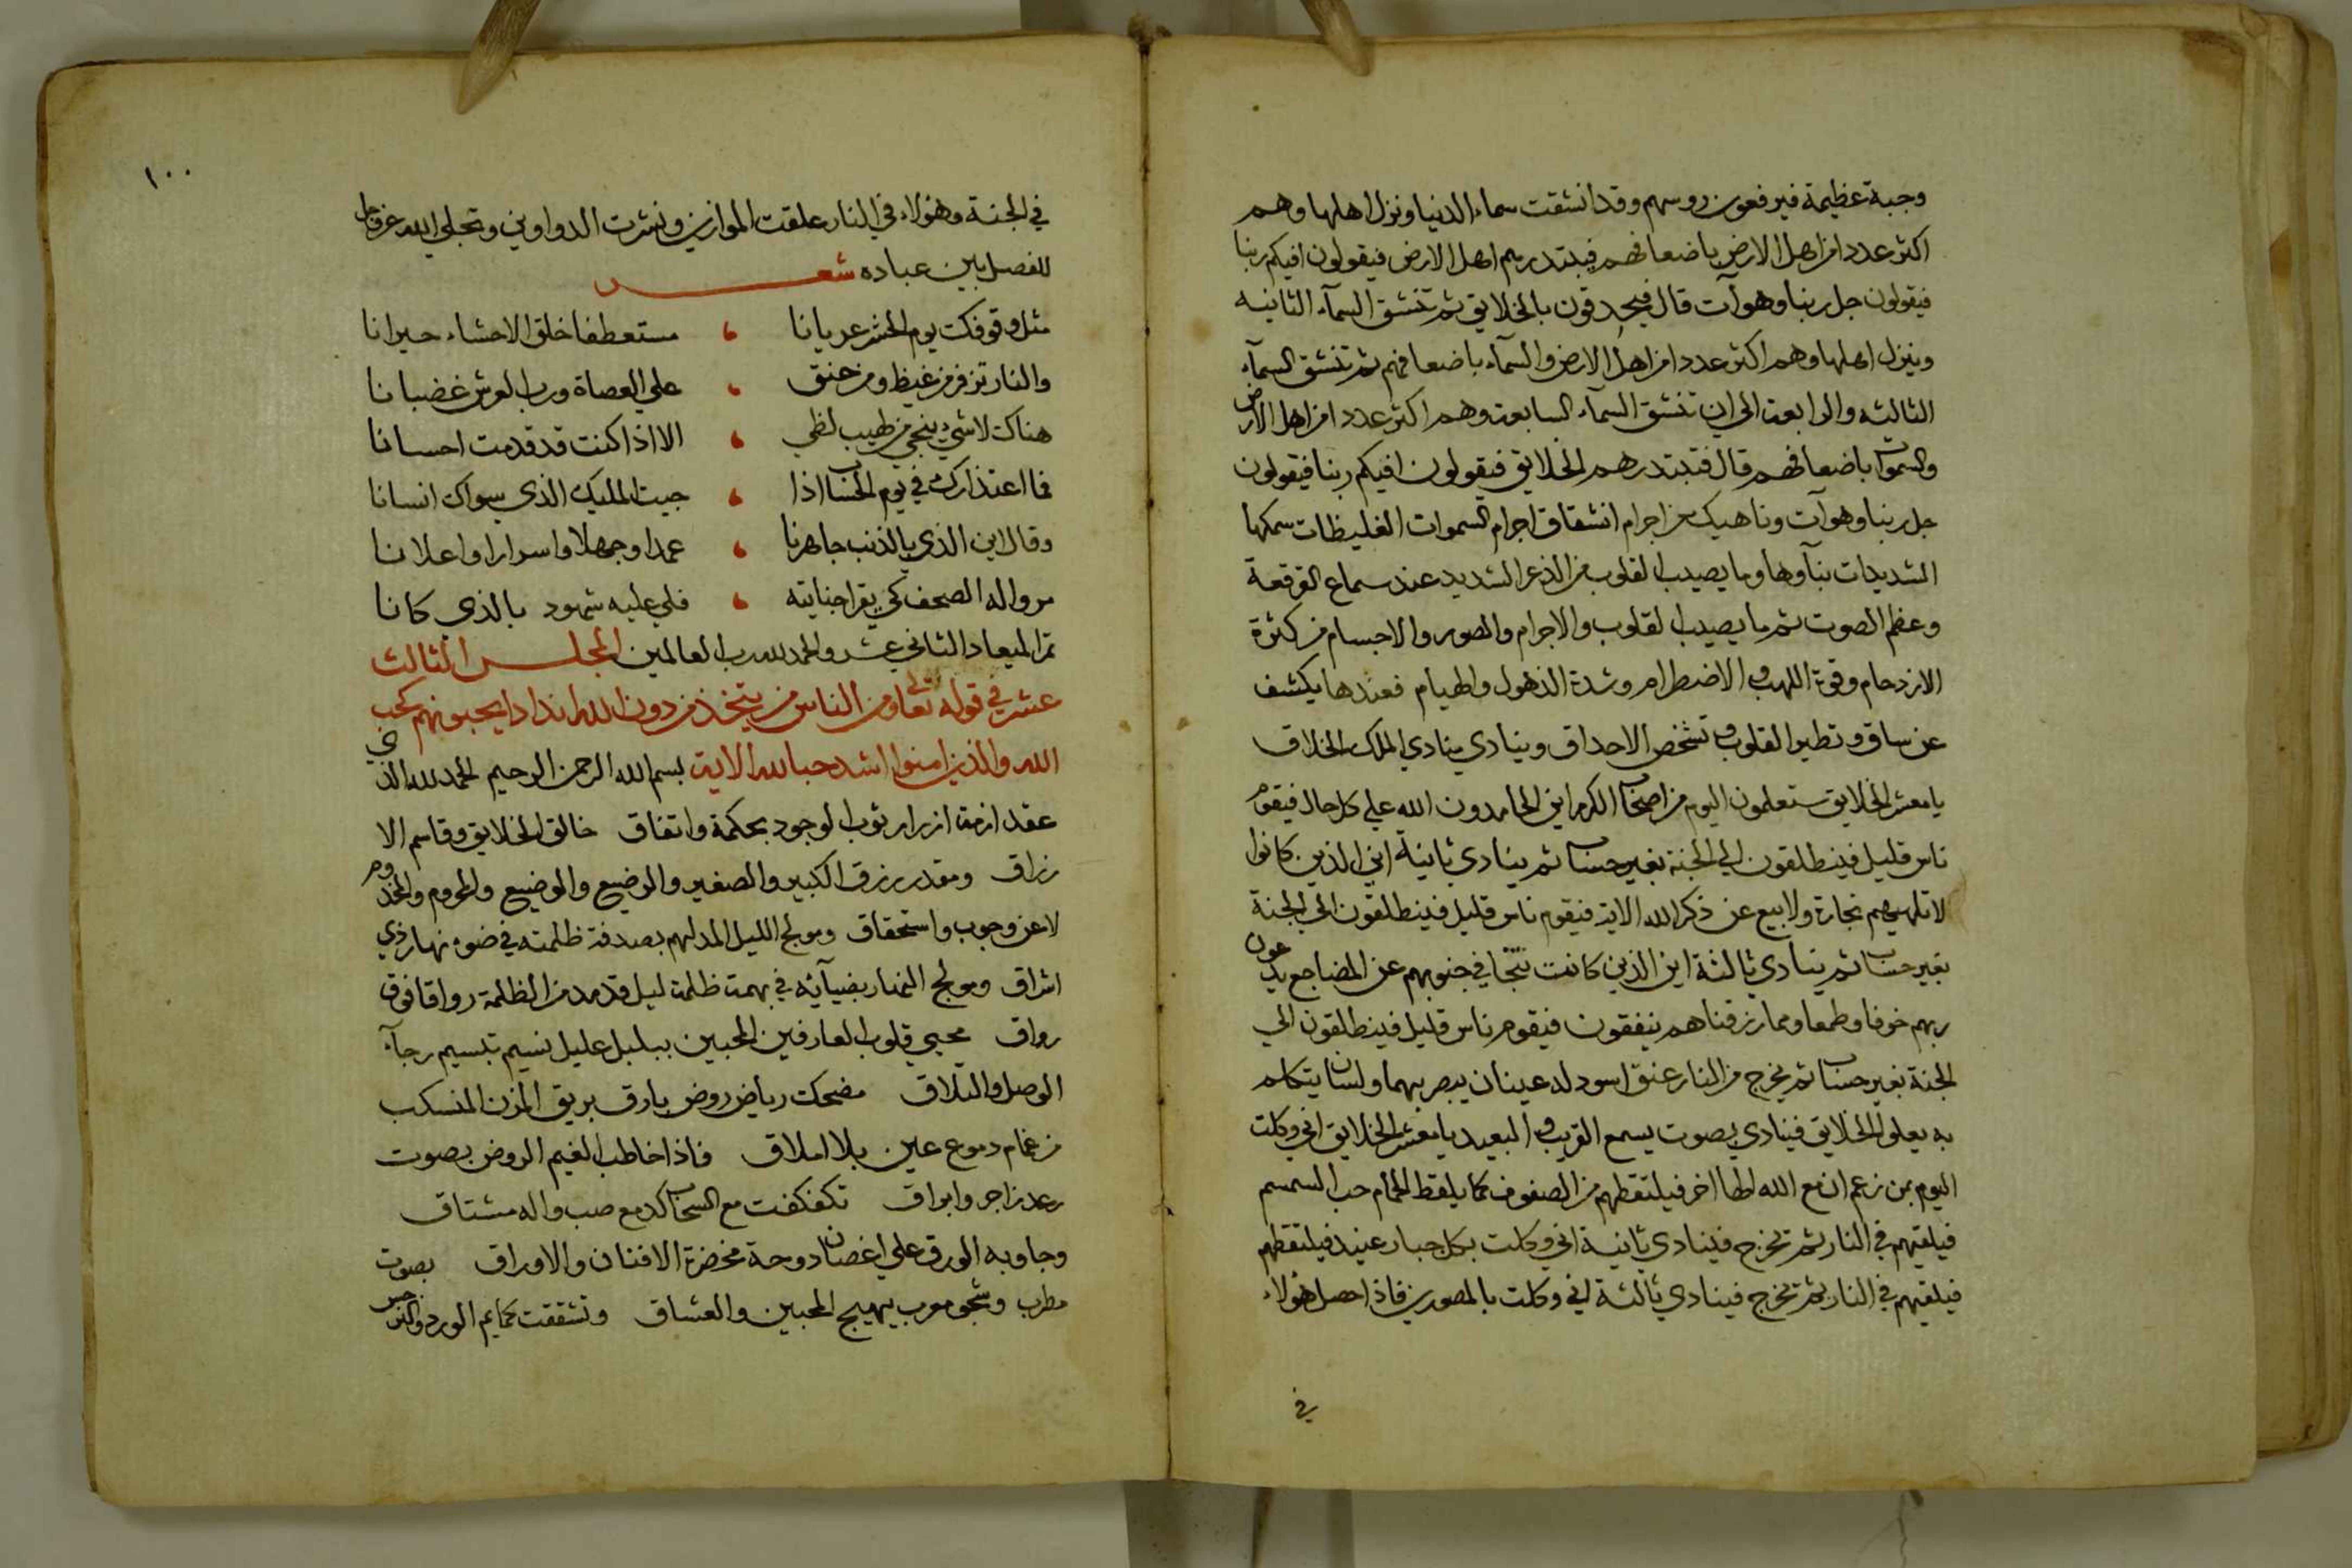 وجبة عظيمة فيرفعون روسهم وقد انشقت سماء الدنيا ونزل اهلها وهم
اكثر عددا من اهل الارض باضعافهم فيبتدرهم اهل الارض فيقولون افيكم ربنا
فيقولون جل ربنا وهو آت قال فيحدقون بالخلايق ثم تنشق السمآء الثانيه
وينزل اهلها وهم اكثر عددا من اهل الارض والسمآء باضعافهم ثم تنشق السمآء
الثالثه والرابعة الى ان تنشق السمآء السابعة وهم اكثر عددا من اهل الارض
والسموات باضعافهم قال فتبتدرهم الخلايق فيقولون افيكم ربنا فيقولون
جل ربنا وهو آت وناهيك عن اجرام انشقاق اجرام السموات الغليظات سمكها
الشديدات بنآوها وما يصيب القلوب من الذعر الشديد عند سماع القرقعة
وعظم الصوت ثم ما يصيب القلوب والاجرام والصور والاجسام من كثرة
الازدحام وقوة اللهب والاضطرام وشدة الذهول والهيام فعندها يكشف
عن ساق وتطير القلوب وتشخص الاحداق وينادي منادي الملك الخلاق
يا معشر الخلايق ستعلمون اليوم من اصحاب الكرم اين الحامدون الله علي كل حال فيقوم
ناس قليل فينطلقون الي الجنة بغير حساب ثم ينادي ثانية اين الذين كانوا
لا تلهيهم تجارة ولا بيع عن ذكر الله الاية فيقوم ناس قليل فينطلقون الي الجنة
بغير حساب ثم ينادي ثالثة اين الذين كانت تتجافي جنوبهم عن المضاجع يدعون
ربهم خوفا وطمعا ومما رزقناهم ينفقون فيقوم ناس قليل فينطلقون الي
الجنة بغير حساب ثم يخرج من النار عنق اسود له عينان يبصر بهما ولسان يتكلم
به يعلو الخلايق فينادي بصوت يسمع القريب والبعيد يا معشر الخلايق اني وكلت
اليوم بمن زعم ان مع الله الها اخر فيلتقطهم من الصفوف كما يلقط الحمام حب السمسم
فيلقيهم في النار ثم يخرج فينادي ثانية اني وكلت بكل جبار عنيد فيلتقطهم
فيلقيهم في النار ثم يخرج فينادي ثالثة اني وكلت بالمصورين فاذا حصل هؤلاء
في
١٠٠
في الجنة وهؤلاء في النار علقت الموازين ونشرت الدواوين وتجلي الله عز وجل
للفصل بين عباده شعر
مثل وقوفك يوم الحشر عريانا ، مستعطفا خلق الاحشاء حيرانا
والنار تزفر من غيظ ومن حنق ، علي العصاة ورب العرش غضبانا
هناك لا شيء ينجي من لهيب لظي ، الا اذا كنت قد قدمت احسانا
فما اعتذارك في يوم الحساب اذا ، جيت المليك الذي سواك انسانا
وقال اين الذي بالذنب جاهرنا ، عمدا وجهلا واسرارا واعلانا
مروا له الصحف كي يقرا جنايته ، فلي عليه شهود بالذي كانا
تم الميعاد الثاني عشر والحمد لله رب العالمين المجلس الثالث
عشر في قوله تعالي ومن الناس من يتخذ من دون الله اندادا يحبونهم كحب
الله والذين امنوا اشد حبا لله الاية بسم الله الرحمن الرحيم الحمد لله الذي
عقد ازمة ازرار ثوب الوجود بحكمة واتفاق خالق الخلايق وقاسم الا
رزاق ومقدر رزق الكبير والصغير والوضيع والوضيع والمحروم والمخدوم
لا عن وجوب واستحقاق ومولج الليل المدلهم بصدفة ظلمته في ضوء نهار ذي
اشراق ومولج النهار بضيآئه في بهمة ظلمة ليل قد مد من الظلمة رواقا فوق
رواق محيي قلوب العارفين المحبين ببليل عليل نسيم تبسيم رجآء
الوصل والتلاق مضحك رياض روض بارق بريق المزن المنسكب
من غمام دموع عين بلا املاق فاذا خاطب الغيم الروض بصوت
رعد زاجر وابراق تكفكفت مع السحاب كدمع صب واله مشتاق
وجاوبه الورق علي اغصان دوحة مخضرة الافنان والاوراق بصوت
مطرب وشجو معرب يهيج المحبين والعشاق وتشققت كمايم الورد والنرجس